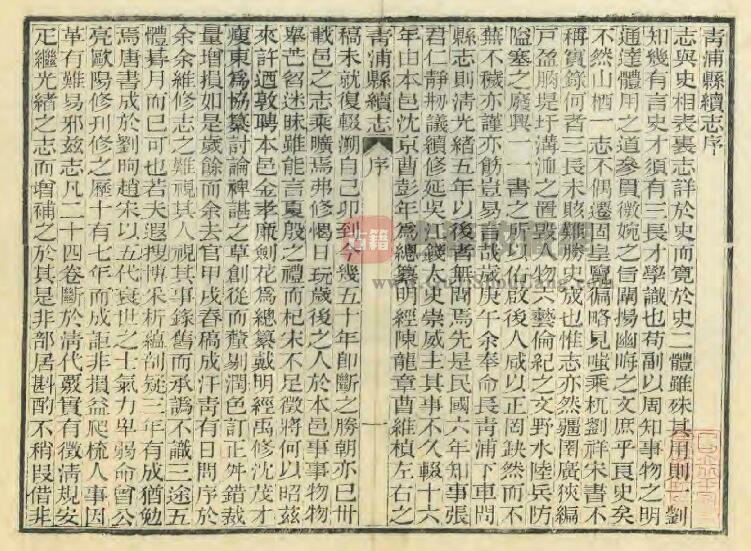 青浦縣續志序
志與史相表裏志詳於史而寬於史二體雖殊其用則劉
知幾有言史才須有三長才學識也苟副以周知事物之明
通達體用之道參貫徵婉之旨闡揚幽晦之文庶乎良史矣
不然山栖一志不偶遷固皇覽徧略見嗤乘杌劉祥朱書不
稱實錄何者三長未賅難勝史成也惟志亦然疆圉廣狹編
戶盈朒堤圩溝洫之置毀人物六藝倫紀之文野水陸兵防
隘塞之廢興一一書之所以佑啟後人咸以正罔缺然而不
蕪不穢亦謹亦飭豈易言哉歲庚午余奉命長青浦下車問
縣志則清光緒五年以後者無聞焉先是民國六年知事張
君仁靜剙議續修延吳錢太史崇威主其事不久輟十六
年由本邑沈京曹彭年爲總纂明經陳龍章曹維楨左右之
青浦縣續志 序 一
稿未就復輟溯自己卯到今幾五十年卽斷之勝朝亦已卅
載邑之志乘曠焉弗修愒日玩歲後之人於本邑事事物物
舉芒曶迷昧雖能言夏殷之禮而杞宋不足徵將何以昭茲
來許迺敦聘本邑金孝廉劍花爲總纂戴明經禹修沈茂才
瘦東爲協纂討論裨諶之草創從而釐剔潤色訂正舛錯裁
量增損如是歲餘而余去官甲戌春稿成汗青有日問序於
余余維修志之難視其人視其事錄舊而承譌不識三途五
體朞月而已可也若夫遐搜博采析縕剖疑三年有成猶勉
焉唐書成於劉昫趙宋以五代衰世之士氣力卑弱命曾公
亮歐陽修刊修之歷十有七年而成詎非損益爬梳人事因
革有難易邪茲志凡二十四卷斷於清代覈實有徵清規安
疋繼光緒之志而增補之於其是非部居斟酌不稍叚借非
古籍